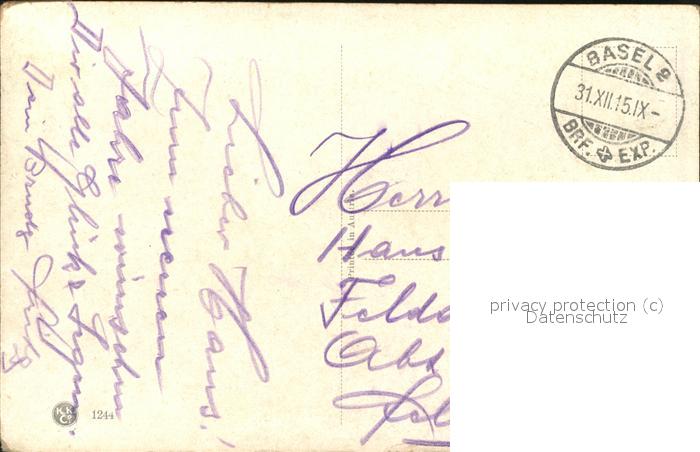 Lieber Hans!
Zum neuen
Jahre wünschen
Dir alle Glück & Segen.
Dein Bruder
BASEL 2
31.XII.15.IX-
BRF. EXP.
Herr
Hans
Feld
Abt
Printed in Austria.
privacy protection (c)
Datenschutz
KK
Co
1244